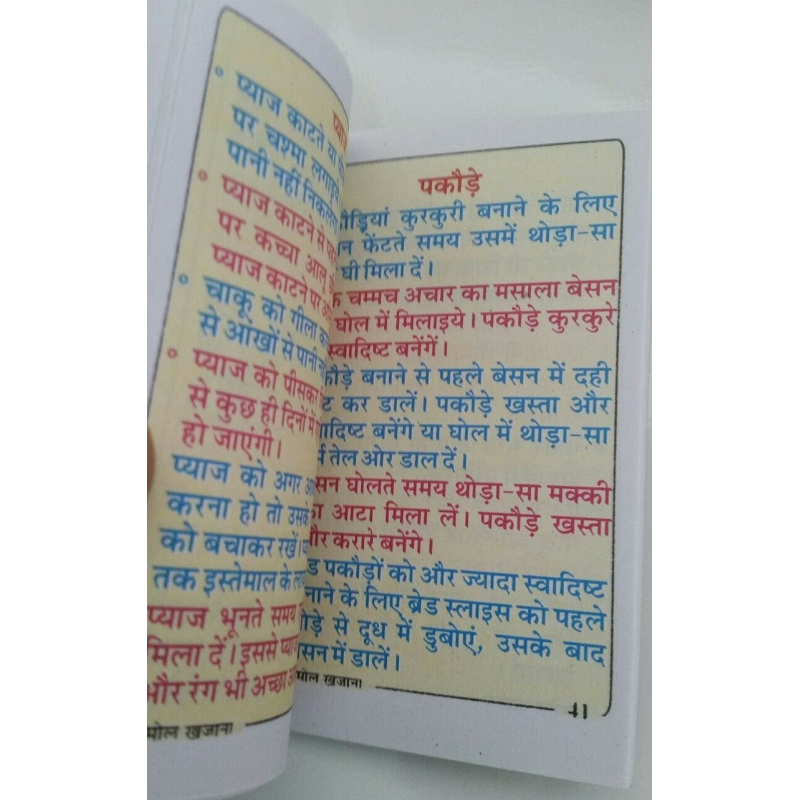 प्याज काटते या
पर चश्मा लगाइये
पानी नहीं
प्याज काटने से
पर कच्चा आलू
प्याज काटने पर
चाकू को गीला
से आंखों से पानी
प्याज को पीसकर
से कुछ ही दिनों में
हो जाएंगी।
प्याज को अगर
करना हो तो उसके
को बचाकर रखें।
तक इस्तेमाल के
प्याज भूनते समय
मिला दें। इससे
और रंग भी अच्छा
मोल खजाना
पकौड़े
कुरकुरी बनाने के लिए
फेंटते समय उसमें थोड़ा-सा
घी मिला दें।
चम्मच अचार का मसाला बेसन
घोल में मिलाइये। पकौड़े कुरकुरे
स्वादिष्ट बनेंगें।
बनाने से पहले बेसन में दही
कर डालें। पकौड़े खस्ता और
बनेंगे या घोल में थोड़ा-सा
तेल ओर डाल दें।
घोलते समय थोड़ा-सा मक्की
आटा मिला लें। पकौड़े खस्ता
और करारे बनेंगे।
पकौड़ों को और ज्यादा स्वादिष्ट
के लिए ब्रेड स्लाइस को पहले
से दूध में डुबोएं, उसके बाद
में डालें।
मोल खजाना
41